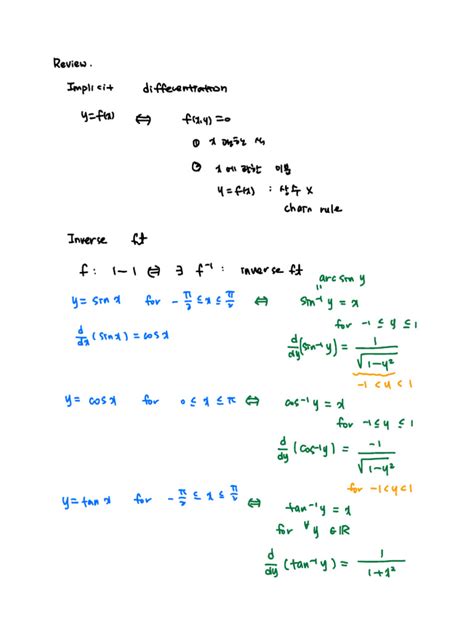 Review.
Implicit differentiation
y=f(x) ⇔ f(x,y)=0
①  x
② x에 대한 미분
y=f(x) : 상수 X
chain rule
Inverse ft
f : 1-1 ⇔ ∃ f⁻¹ : inverse ft
arcsin y
y = sin x for -π/2 ≤ x ≤ π/2 ⇔ sin⁻¹ y = x
for -1 ≤ y ≤ 1
d/dx (sin x) = cos x d/dy (sin⁻¹ y) = 1/√(1-y²)
-1 < y < 1
y = cos x for 0 ≤ x ≤ π ⇔ cos⁻¹ y = x
for -1 ≤ y ≤ 1
d/dy (cos⁻¹ y) = -1/√(1-y²)
for -1<y<1
y = tan x for -π/2 ≤ x ≤ π/2 ⇔ tan⁻¹ y = x
for ∀ y ∈ ℝ
d/dy (tan⁻¹ y) = 1/(1+x²)